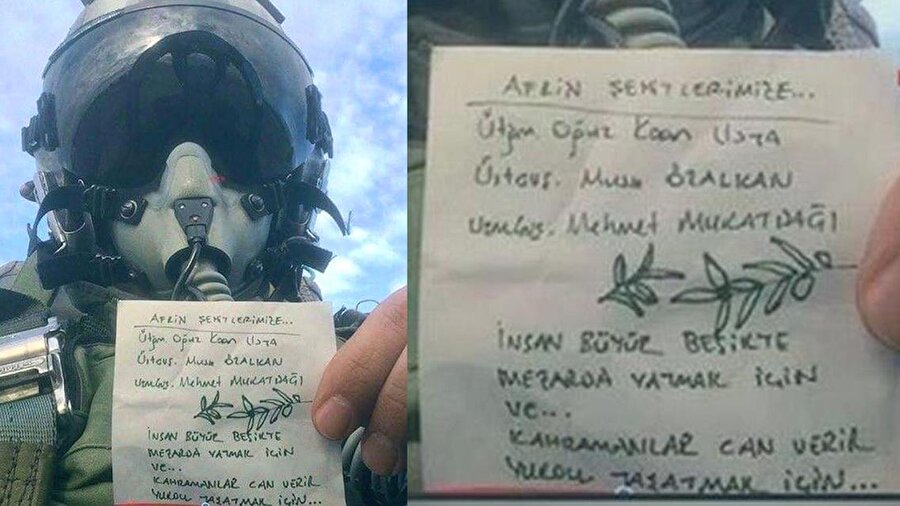 AFRİN ŞEHİTLERİMİZE...
Ütğm. Oğuz Kaan USTA
Üstçvş. Musa ÖZALKAN
Uzm.Çvş. Mehmet MURATDAĞI
İNSAN BÜYÜR BEŞİKTE
MEZARDA YATMAK İÇİN
VE...
KAHRAMANLAR CAN VERİR
YURDU YAŞATMAK İÇİN...
AFRİN ŞEHİTLERİMİZE...
Ütğm. Oğuz Kaan USTA
Üstçvş. Musa ÖZALKAN
Uzm.Çvş. Mehmet MURATDAĞI
İNSAN BÜYÜR BEŞİKTE
MEZARDA YATMAK İÇİN
VE...
KAHRAMANLAR CAN VERİR
YURDU YAŞATMAK İÇİN...